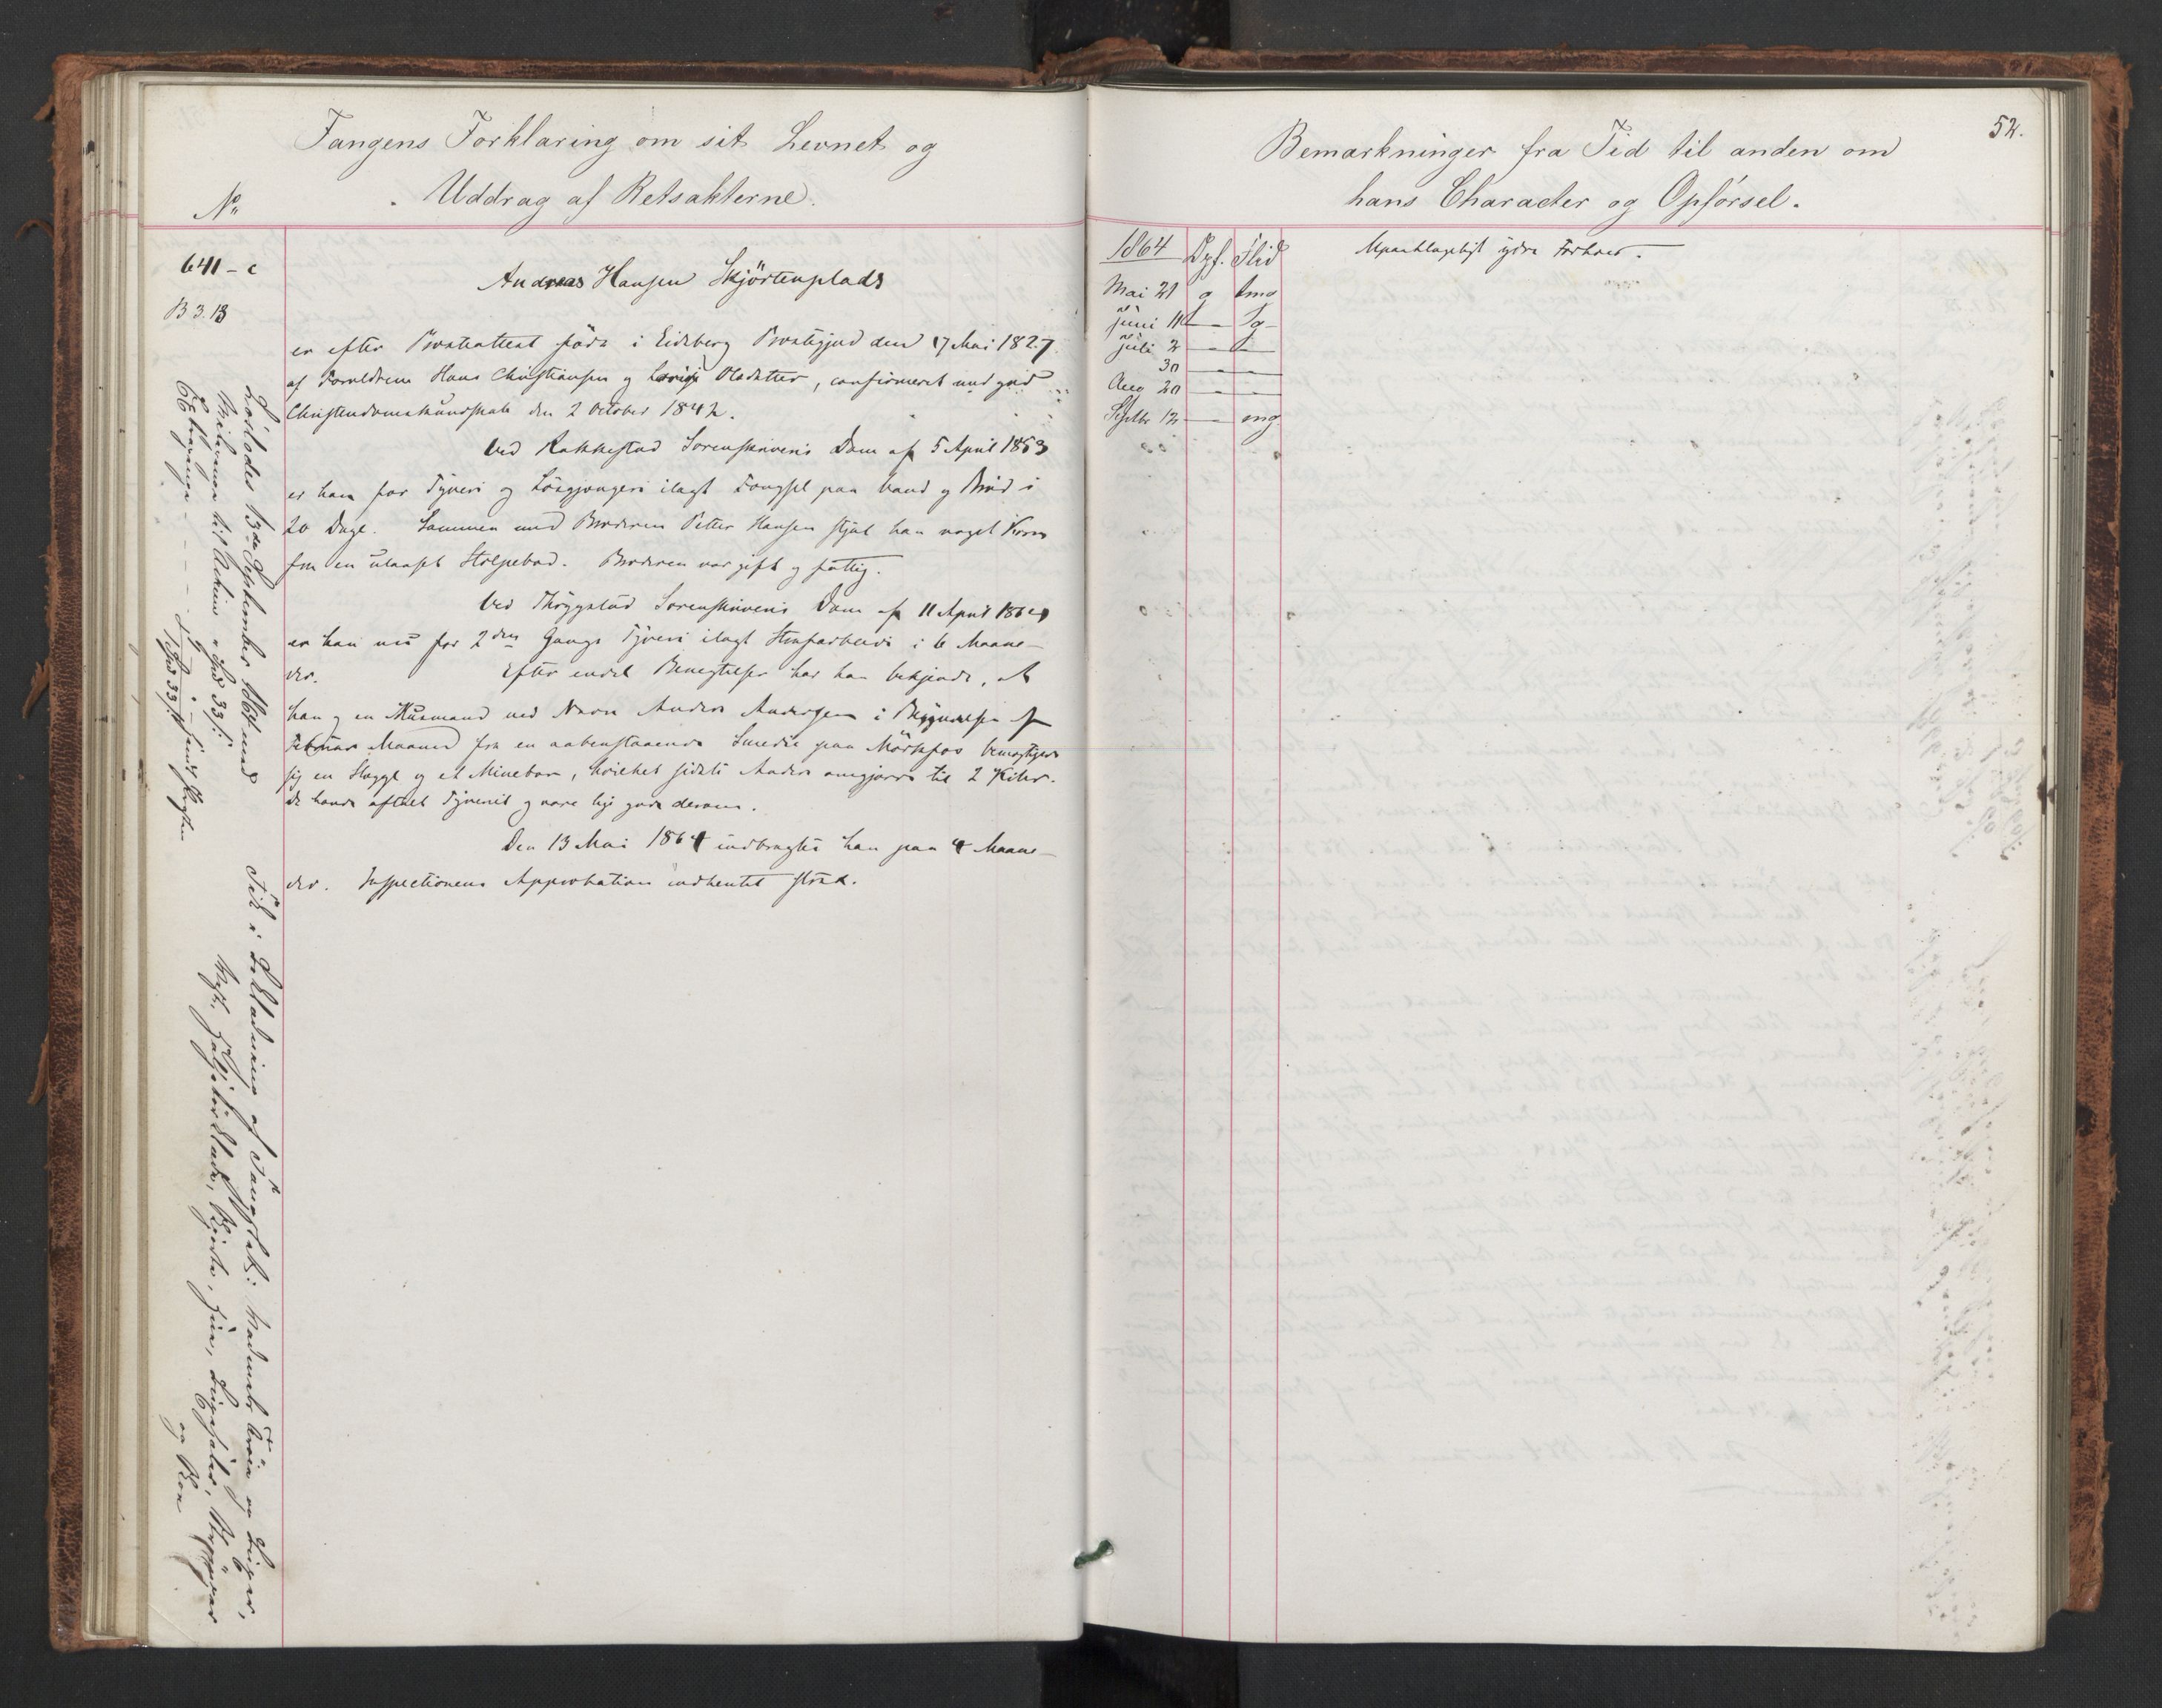 Fangens Forklaring om sit Levnet og
Uddrag af Retsakterne.
No
641 - c
B 3.13
Andreas Hansen Skjörtenplads
er efter Præsteattest född i Eidsberg Præstegjeld den 17 Mai 1827
af Forældrene Hans Christiansen og Olsdatter, confirmeret med god
Christendomskundskab den 2 October 1842.
Ved Rakkestad Sorenskriveris Dom af 5 April 1853
er han for Tyveri og Løsgjængeri ilagt Fængsel paa Vand og Bröd i
20 Dage. Sammen med Broderen Petter Hansen stjal han noget Korn
fra en ulaaset Stolpebod. Broderen var gift og fattig.
Ved Thrygstad Sorenskriveris Dom af 11 April 1864
er han nu for 2den Gangs Tyveri ilagt Strafarbeide i 6 Maane-
der. Efter endel Benegtelser har han bekjendt, at
han og en Muurmand ved Navn Anders Andersen i Begyndelsen af
Februar Maaned fra en aabenstaaende Smedie paa Mörkfos bemægtigede
sig en Slægge og et Minebor, hvilket sidste Anders omgjorde til 2 Kiler.
De havde aftalt Tyveriet og vare lige gode derom.
Den 13 Mai 1864 indbragtes han paa 4 Maane-
der. Inspectionens Approbation indhentet strax.
Løslodes 13de September 1864 med
Fik i Beklædning af Fangetøi: Vadmels Trøie og Buxer,
Skjorte, Huue,
og Skoe
52.
Bemærkninger fra Tid til anden om
hans Character og Opførsel.
1864 Opf. Flid
Mai 21 g tmg
Juni 11 — g —
Juli 2 — —
30 — —
Aug 20 — —
Septbr 12 — mg
Upaaklageligt ydre Forhold.